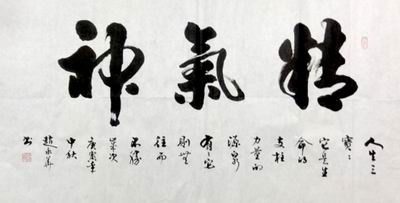 精氣神
人生三
寶
它是生
命的
支柱
力量的
源泉
有了它
則無
往而
不勝
歲次
庚寅年
中秋
書